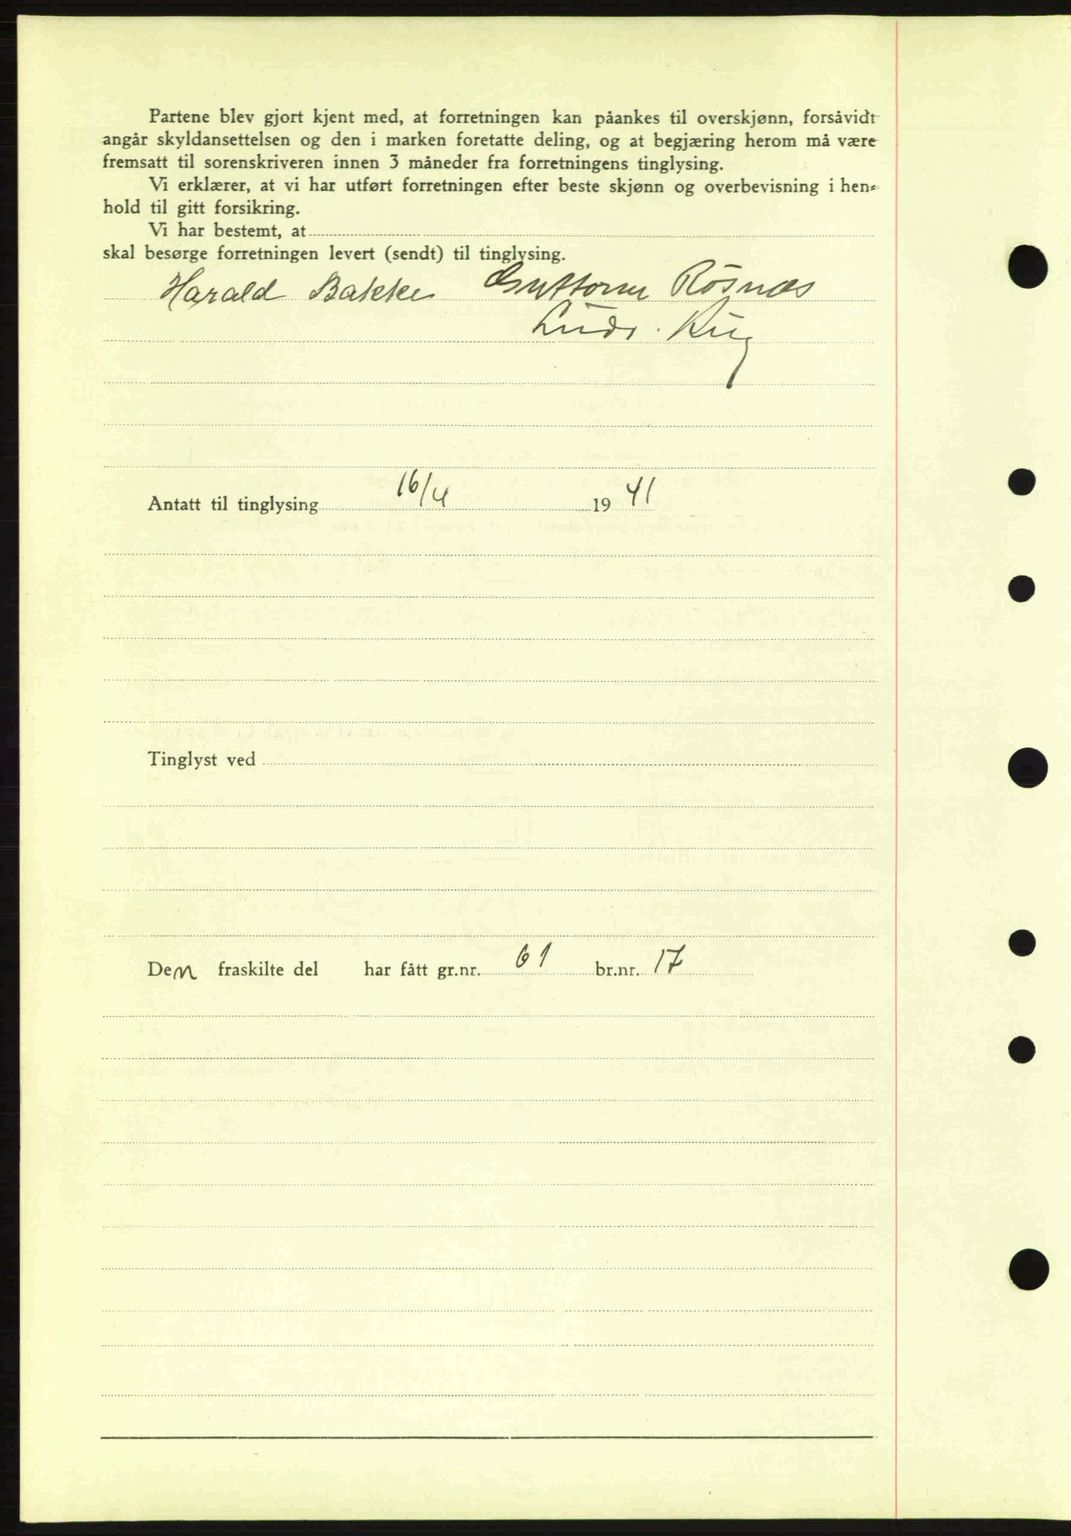 Partene blev gjort kjent med, at forretningen kan påankes til overskjønn, forsåvidt
angår skyldansettelsen og den i marken foretatte deling, og at begjæring herom må være
fremsatt til sorenskriveren innen 3 måneder fra forretningens tinglysing.
Vi erklærer, at vi har utført forretningen efter beste skjønn og overbevisning i hen-
hold til gitt forsikring.
Vi har bestemt, at
skal besørge forretningen levert (sendt) til tinglysing.
Harald Bakke Guttorm Røsnæs
Ludv.
Antatt til tinglysing 16/4 19 41
Tinglyst ved
Den fraskilte del har fått gr.nr. 61 br.nr. 17